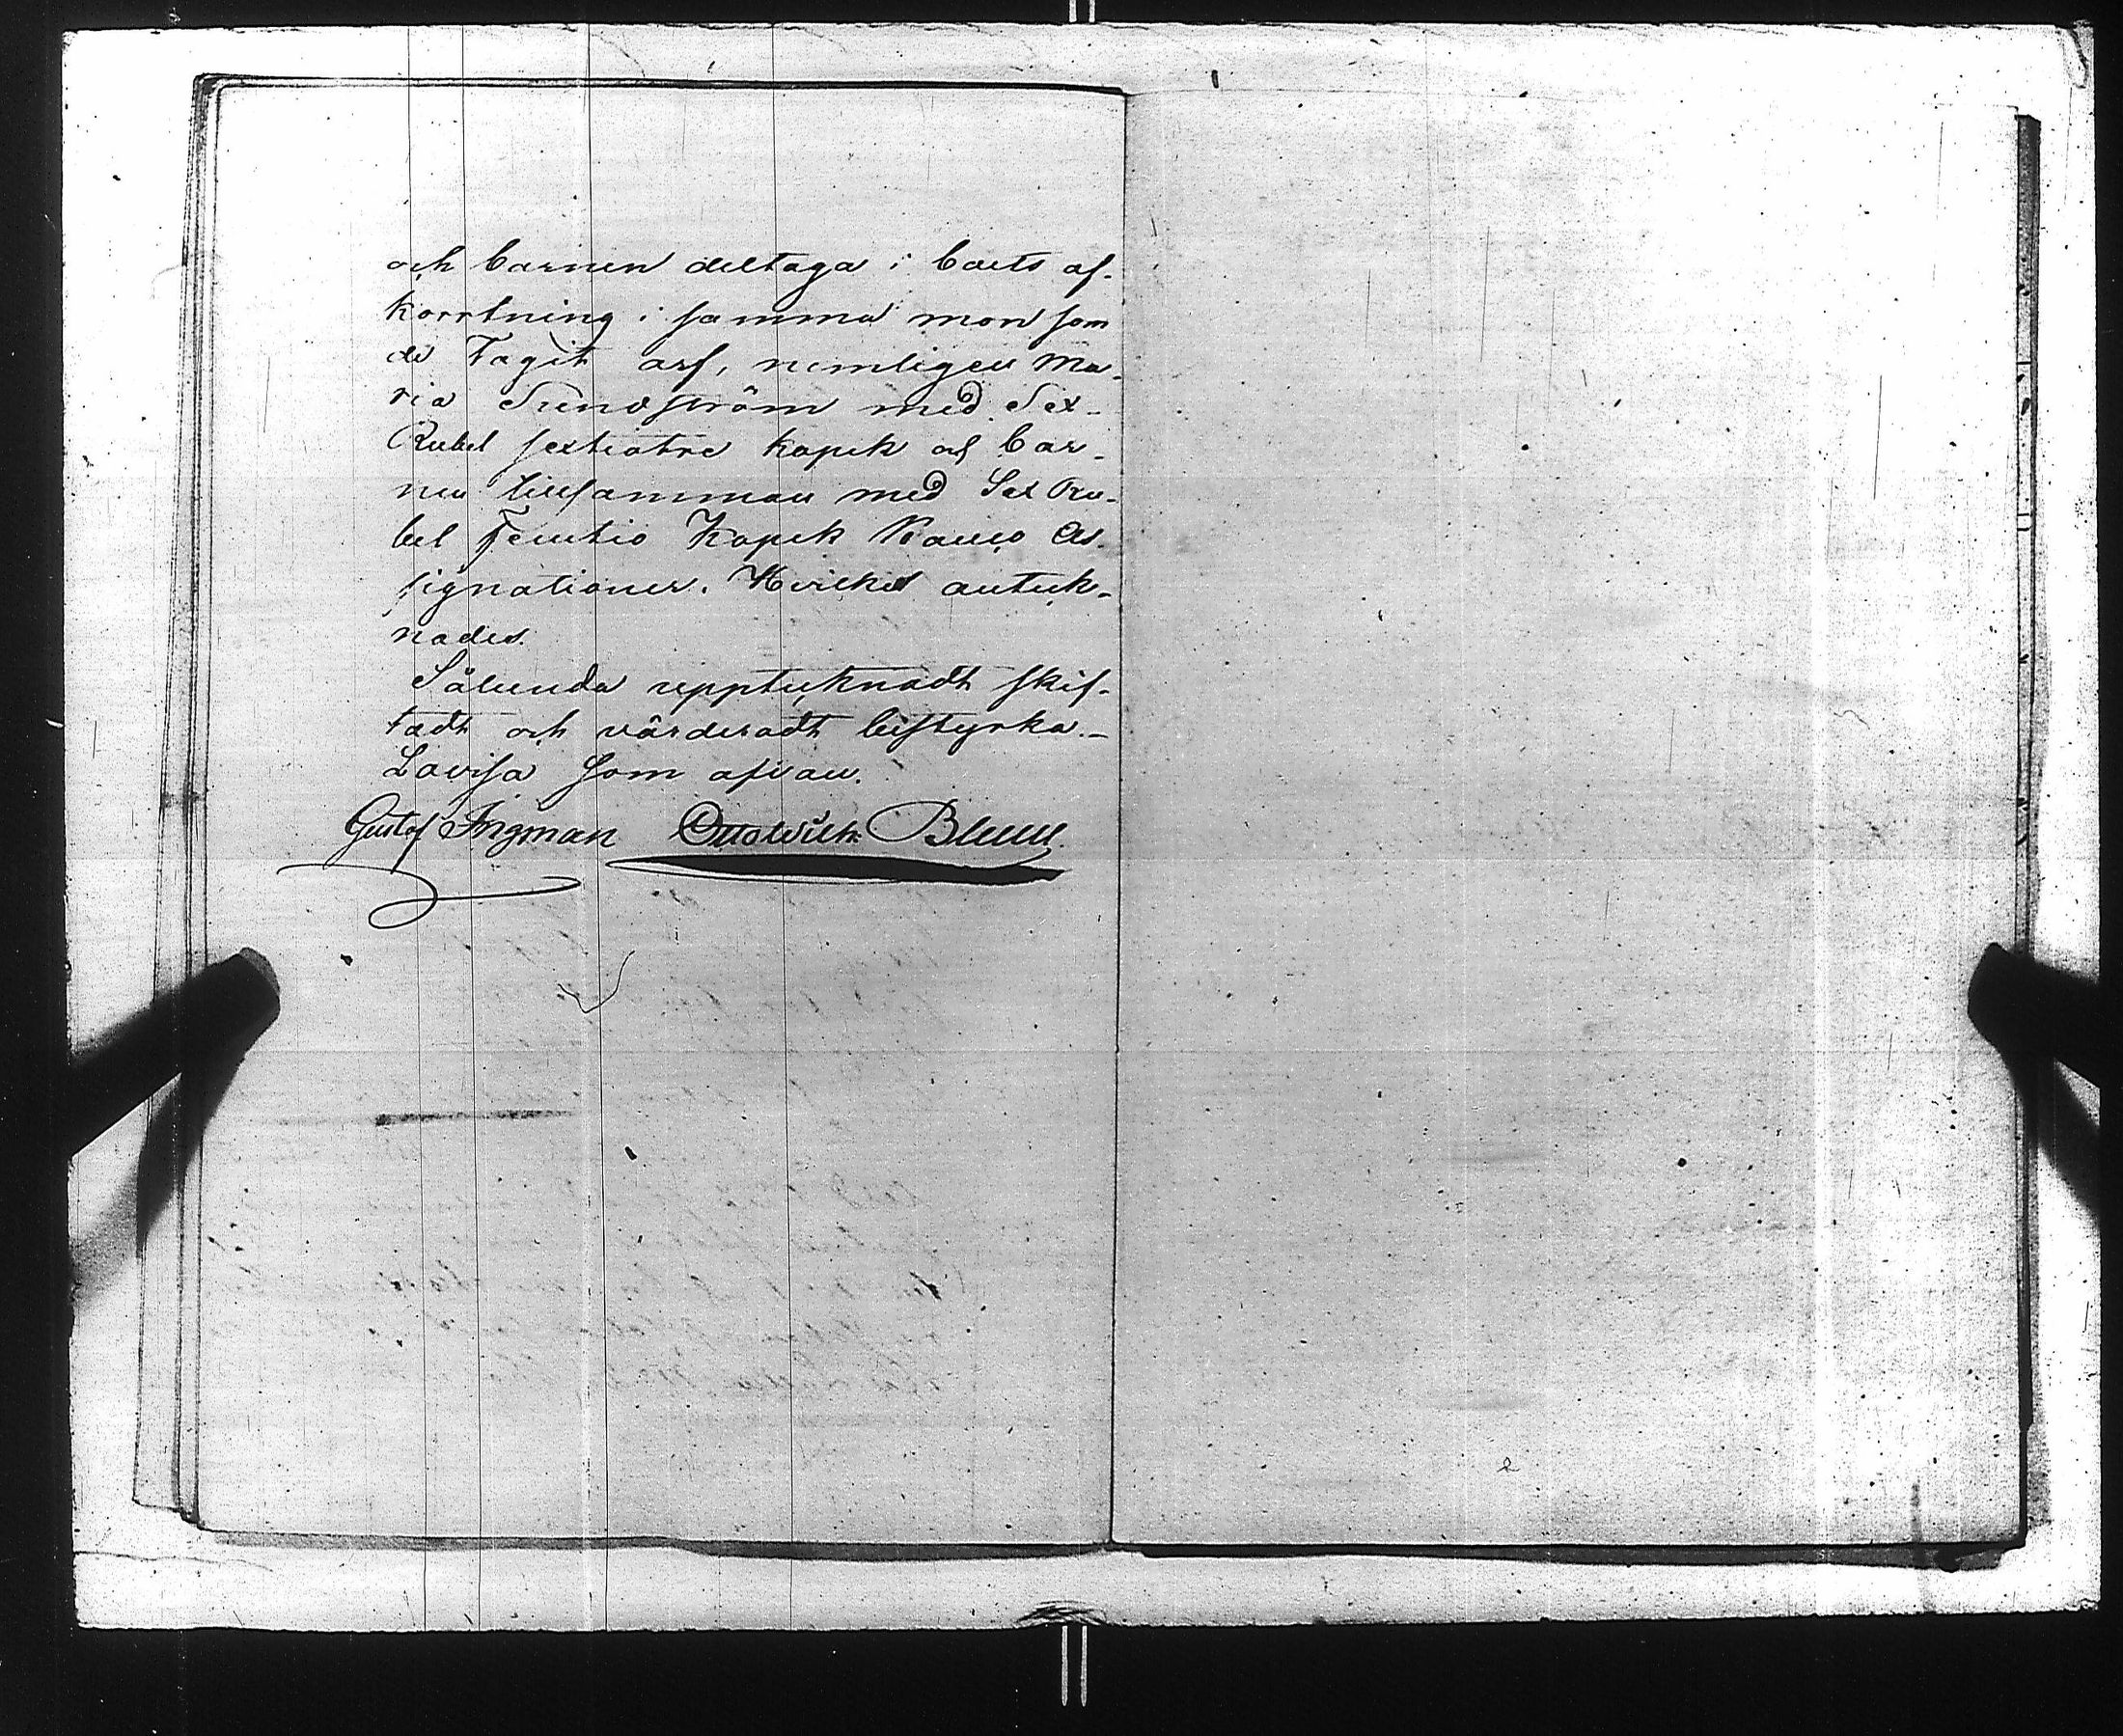 och barnen deltaga i boets af-
kortning i samma mon som
de tagit arf, nemligen Ma-
ria Sundström med Sex
Rubel sextiotre kopek och bar-
nen tillsamman med Sex Ru-
bel Femtio Kopek Banco As-
signationer. Hvilket anteck-
nades.
Sålunda upptecknadt skif-
tadt och värderadt bestyrka.-
Lovisa som ofvan.
Gustaf Ingman Otto Wilh. Bluum.
2